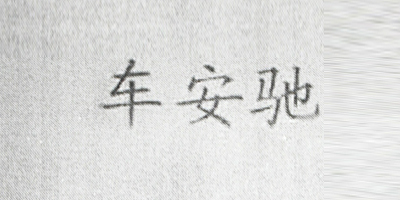 车安驰